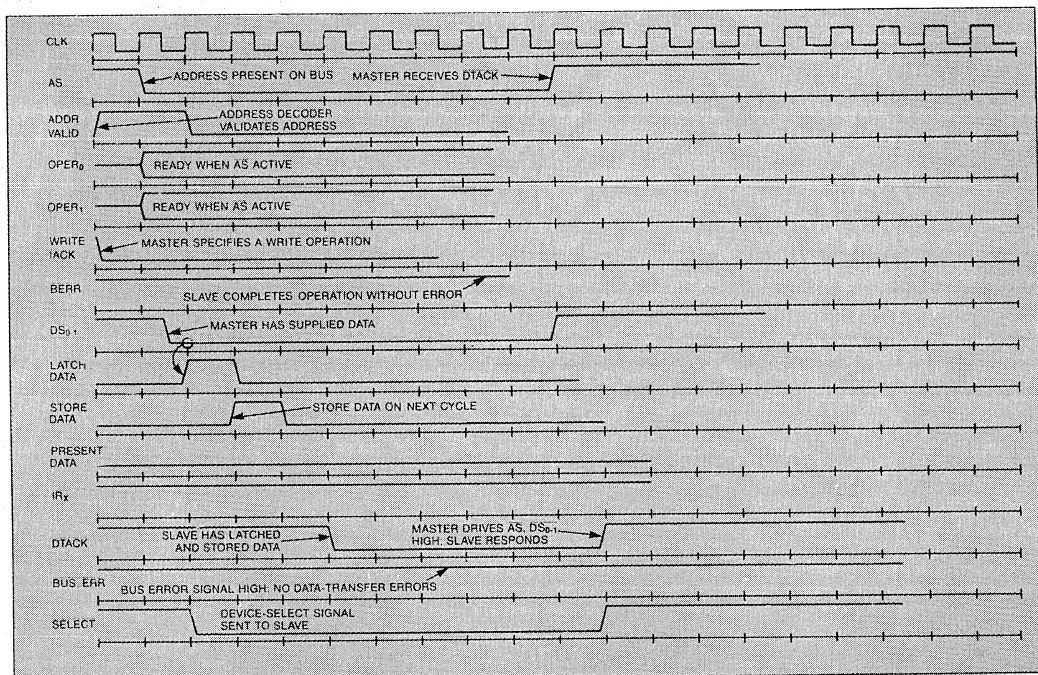 CLK
AS
ADDRESS PRESENT ON BUS
MASTER RECEIVES DTACK
ADDR
VALID
ADDRESS DECODER
VALIDATES ADDRESS
OPER0
READY WHEN AS ACTIVE
OPER1
READY WHEN AS ACTIVE
WRITE
IACK
MASTER SPECIFIES A WRITE OPERATION
BERR
SLAVE COMPLETES OPERATION WITHOUT ERROR
DS0-1
MASTER HAS SUPPLIED DATA
LATCH
DATA
STORE
DATA
STORE DATA ON NEXT CYCLE
PRESENT
DATA
IRX
DTACK
SLAVE HAS LATCHED
AND STORED DATA
MASTER DRIVES AS, DS0-1
HIGH; SLAVE RESPONDS
BUS ERR
BUS ERROR SIGNAL HIGH: NO DATA-TRANSFER ERRORS
SELECT
DEVICE-SELECT SIGNAL
SENT TO SLAVE